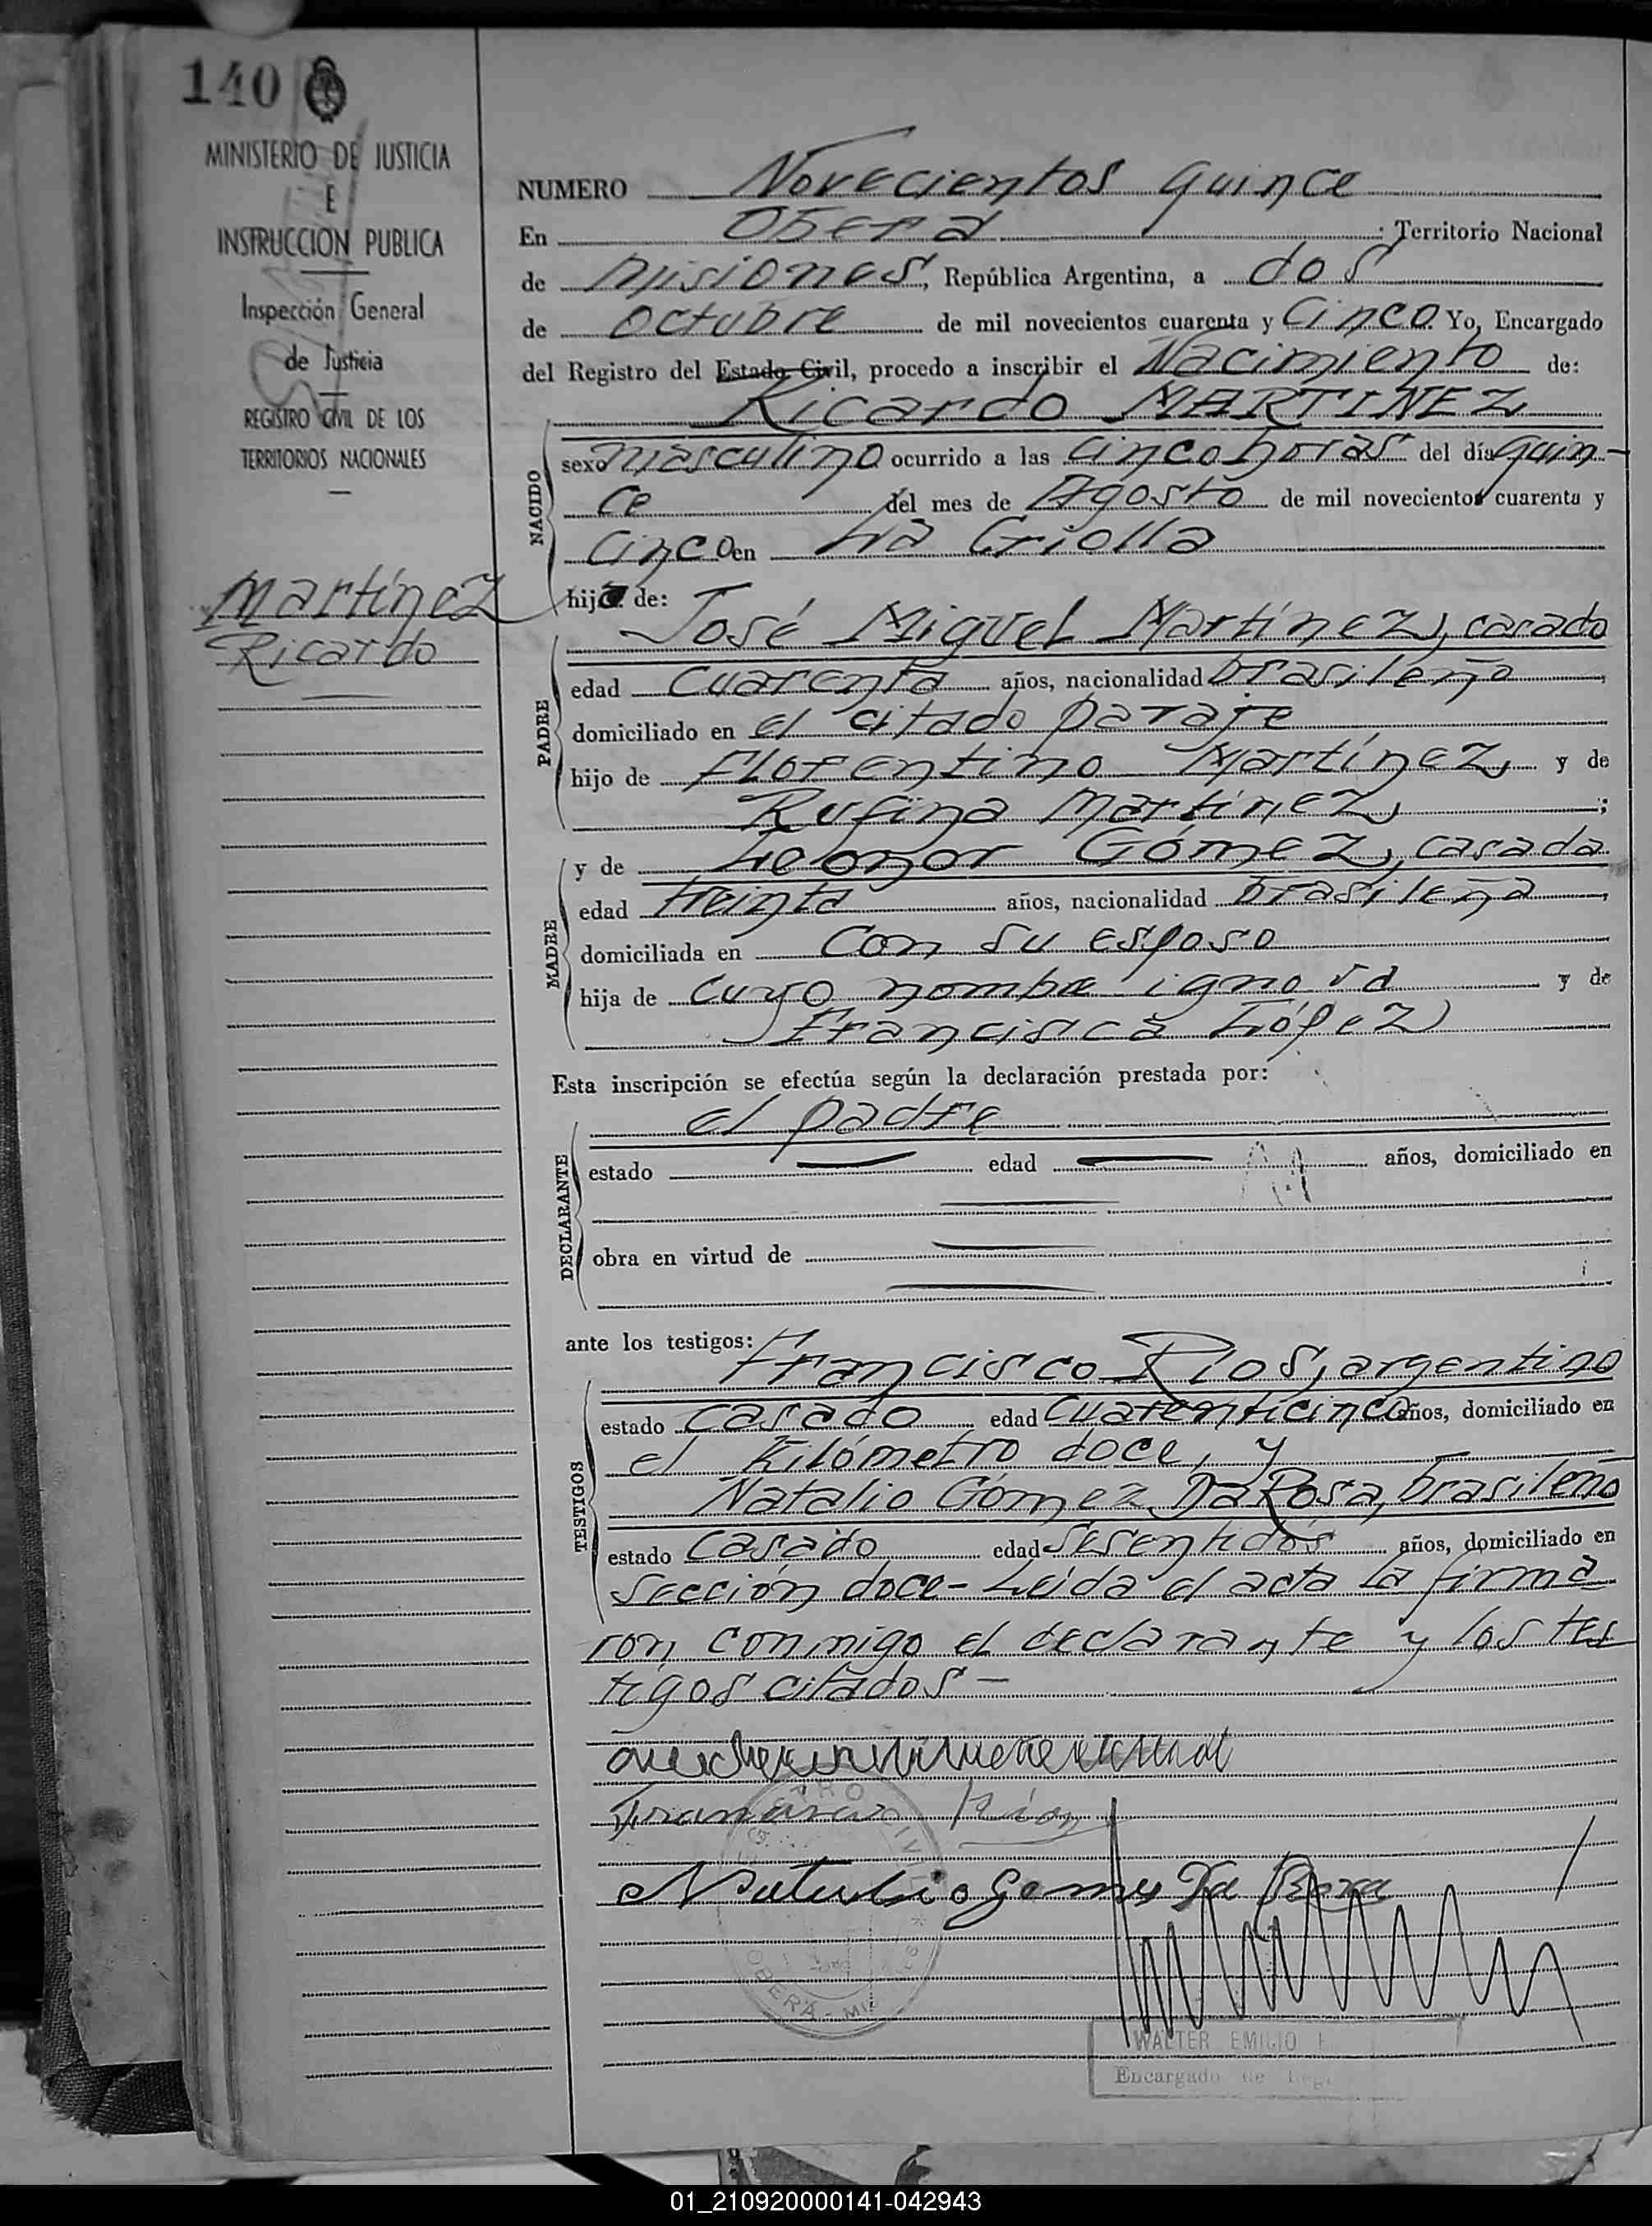 140
MINISTERIO DE JUSTICIA
E
INSTRUCCION PUBLICA
Inspección General
de Justicia
REGISTRO CIVIL DE LOS
TERRITORIOS NACIONALES
Martínez
Ricardo
NUMERO Novecientos quince
En Oberá : Territorio Nacional
de Misiones, República Argentina, a dos
de Octubre de mil novecientos cuarenta y cinco. Yo, Encargado
del Registro del Estado Civil, procedo a inscribir el Nacimiento de:
Ricardo MARTINEZ
NACIDO
sexo masculino ocurrido a las cinco horas del día quin-
ce del mes de Agosto de mil novecientos cuarenta y
cinco en La Criolla
hijo de:
José Miguel Martínez, casado
PADRE
edad cuarenta años, nacionalidad brasileño,
domiciliado en el citado paraje
hijo de Florentino Martínez, y de
Rufina Martínez, ;
MADRE
y de Leonor Gómez, casada
edad treinta años, nacionalidad brasileña,
domiciliada en con su esposo
hija de cuyo nombre ignora y de
Francisca López)
Esta inscripción se efectúa según la declaración prestada por:
el padre
DECLARANTE
estado — edad — años, domiciliado en
obra en virtud de —
ante los testigos:
Francisco Rios, argentino
TESTIGOS
estado casado edad cuarenticinco años, domiciliado en
el Kilómetro doce, y
Natalio Gómez Da Rosa, brasileño
estado casado edad sesentidós años, domiciliado en
sección doce- Leída el acta la firma
ron conmigo el declarante y los tes
tigos citados —
Francisco Rios
Natalio Gomes Da Rosa
REGISTRO CIVIL
OBERÁ - MIS
WALTER EMILIO
Encargado de
01_210920000141-042943